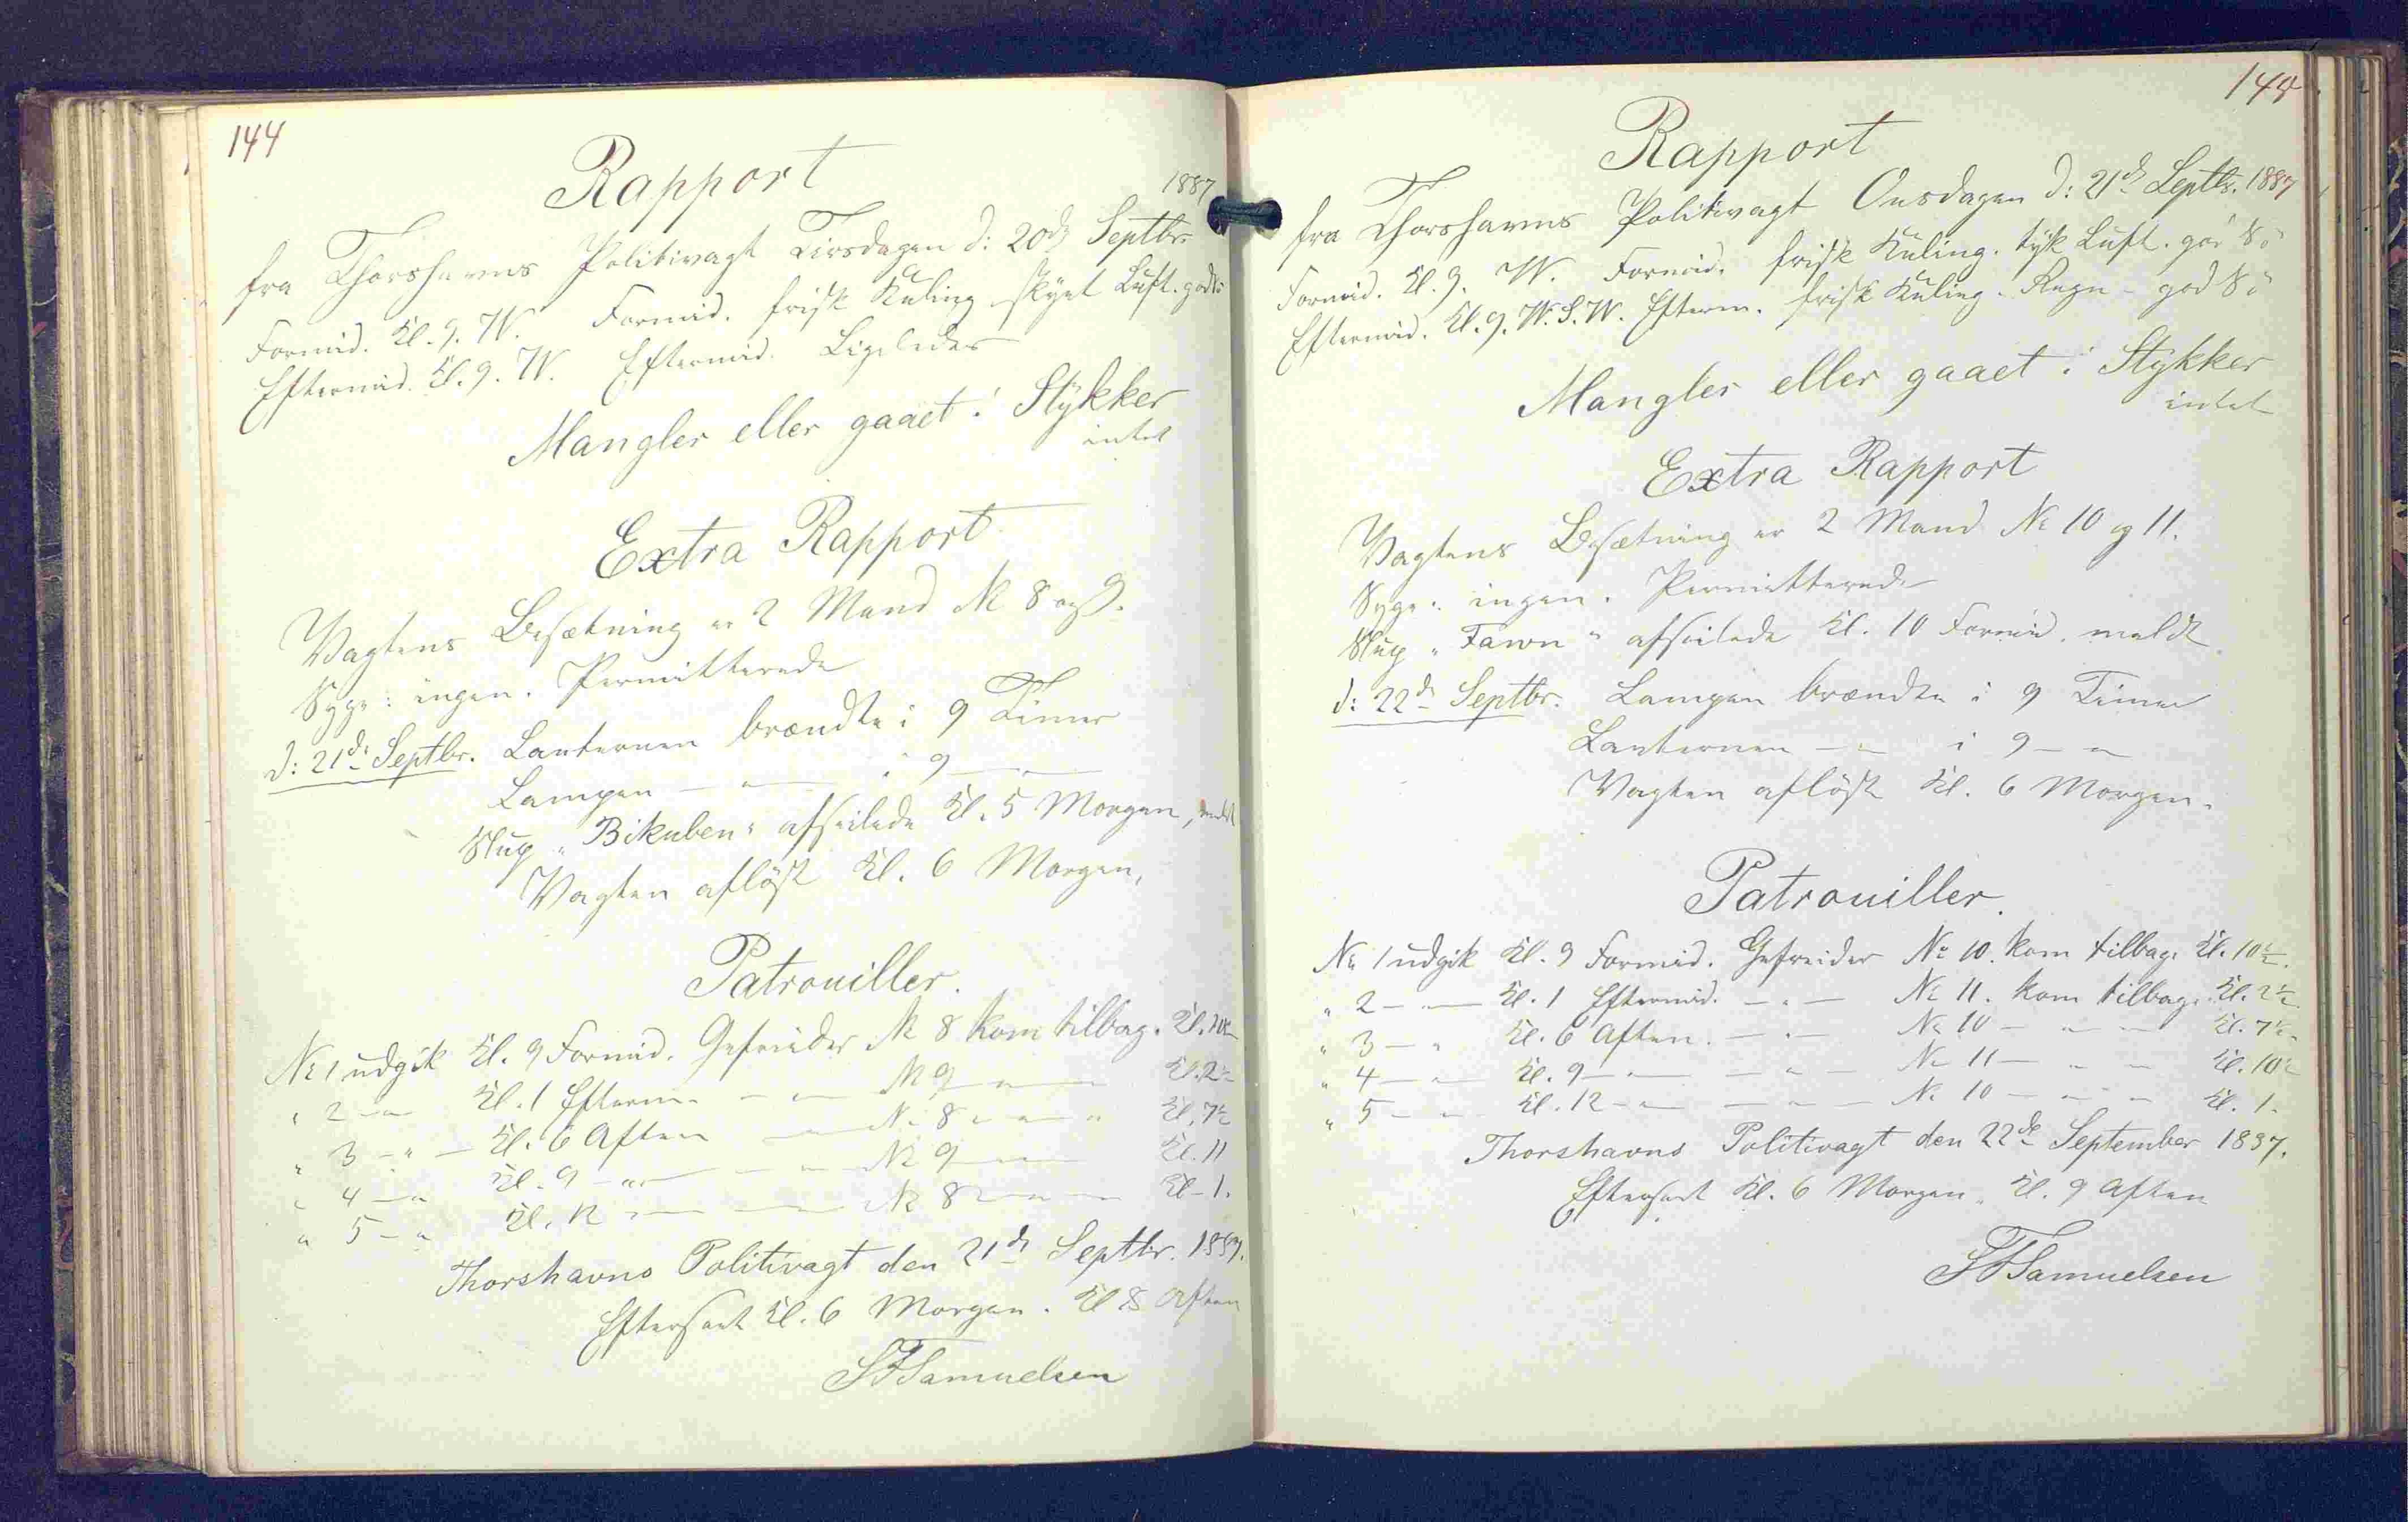 144
Rapport
1887
fra Thorshavns Politivagt Tirsdagen d: 20de Septbr.
Formid. Kl. 9. W. Formid. frisk Kuling skyet Luft. god Sö
Eftermid. Kl. 9. W. Eftermid. Ligeledes
Mangler eller gaaet i Stykker
intet
Extra Rapport
Vagtens Besætning er 2 Mand № 8 og 9.
Syge: ingen. Permitterede
d: 21de Septbr. Lanternen brændte i 9 Timer
Lampen — " — " 9 — " —
Slup "Bikuben" afseilede Kl. 5 Morgen, meldt
Vagten aflöst Kl. 6 Morgen.
Patrouiller.
№ 1 udgik Kl. 9 Formid. Gefreider № 8 kom tilbage Kl. 10½
" 2 — " — Kl. 1 Efterm. — " — № 9 — " — Kl. 2½
" 3 — " — Kl. 6 Aften — " — № 8 — " — " Kl. 7½
" 4 — " Kl. 9 — " — — " — № 9 — " — Kl. 11
" 5 — " Kl. 12 — " — — " — № 8 — " — " — Kl. 1.
Thorshavns Politivagt den 21de Septbr. 1887.
Efterseet Kl. 6 Morgen. Kl 8 Aften
Samuelsen
145
Rapport
fra Thorshavns Politivagt Onsdagen d: 21de Septbr. 1887
Formid. Kl. 9. W. Formid. frisk Kuling. tyk Luft. god Sö
Eftermid. Kl. 9. W.S.W. Efterm. frisk Kuling - Regn - god Sö
Mangler eller gaaet i Stykker
intet
Extra Rapport
Vagtens Besætning er 2 Mand № 10 og 11.
Syge: ingen. Permitterede
Slup "Fawn" afseilede Kl. 10 Formid. meldt
d: 22de Septbr. Lampen brændte i 9 Timer
Lanternen — " — i 9 — "
Vagten aflöst Kl. 6 Morgen.
Patrouiller.
№ 1 udgik Kl. 9 Formid. Gefreider № 10. kom tilbage Kl. 10½.
" 2 — " — Kl. 1 Eftermid. — " — № 11. kom tilbage Kl. 2½
" 3 — " Kl. 6 Aften. — " — № 10 — " — Kl. 7½.
" 4 — " — Kl. 9 — " — — " — № 11 — " — Kl. 10½
" 5 — " — Kl. 12 — " — — " — № 10 — " — Kl. 1.
Thorshavns Politivagt den 22de September 1887.
Efterseet Kl. 6 Morgen. Kl. 9 Aften
Samuelsen